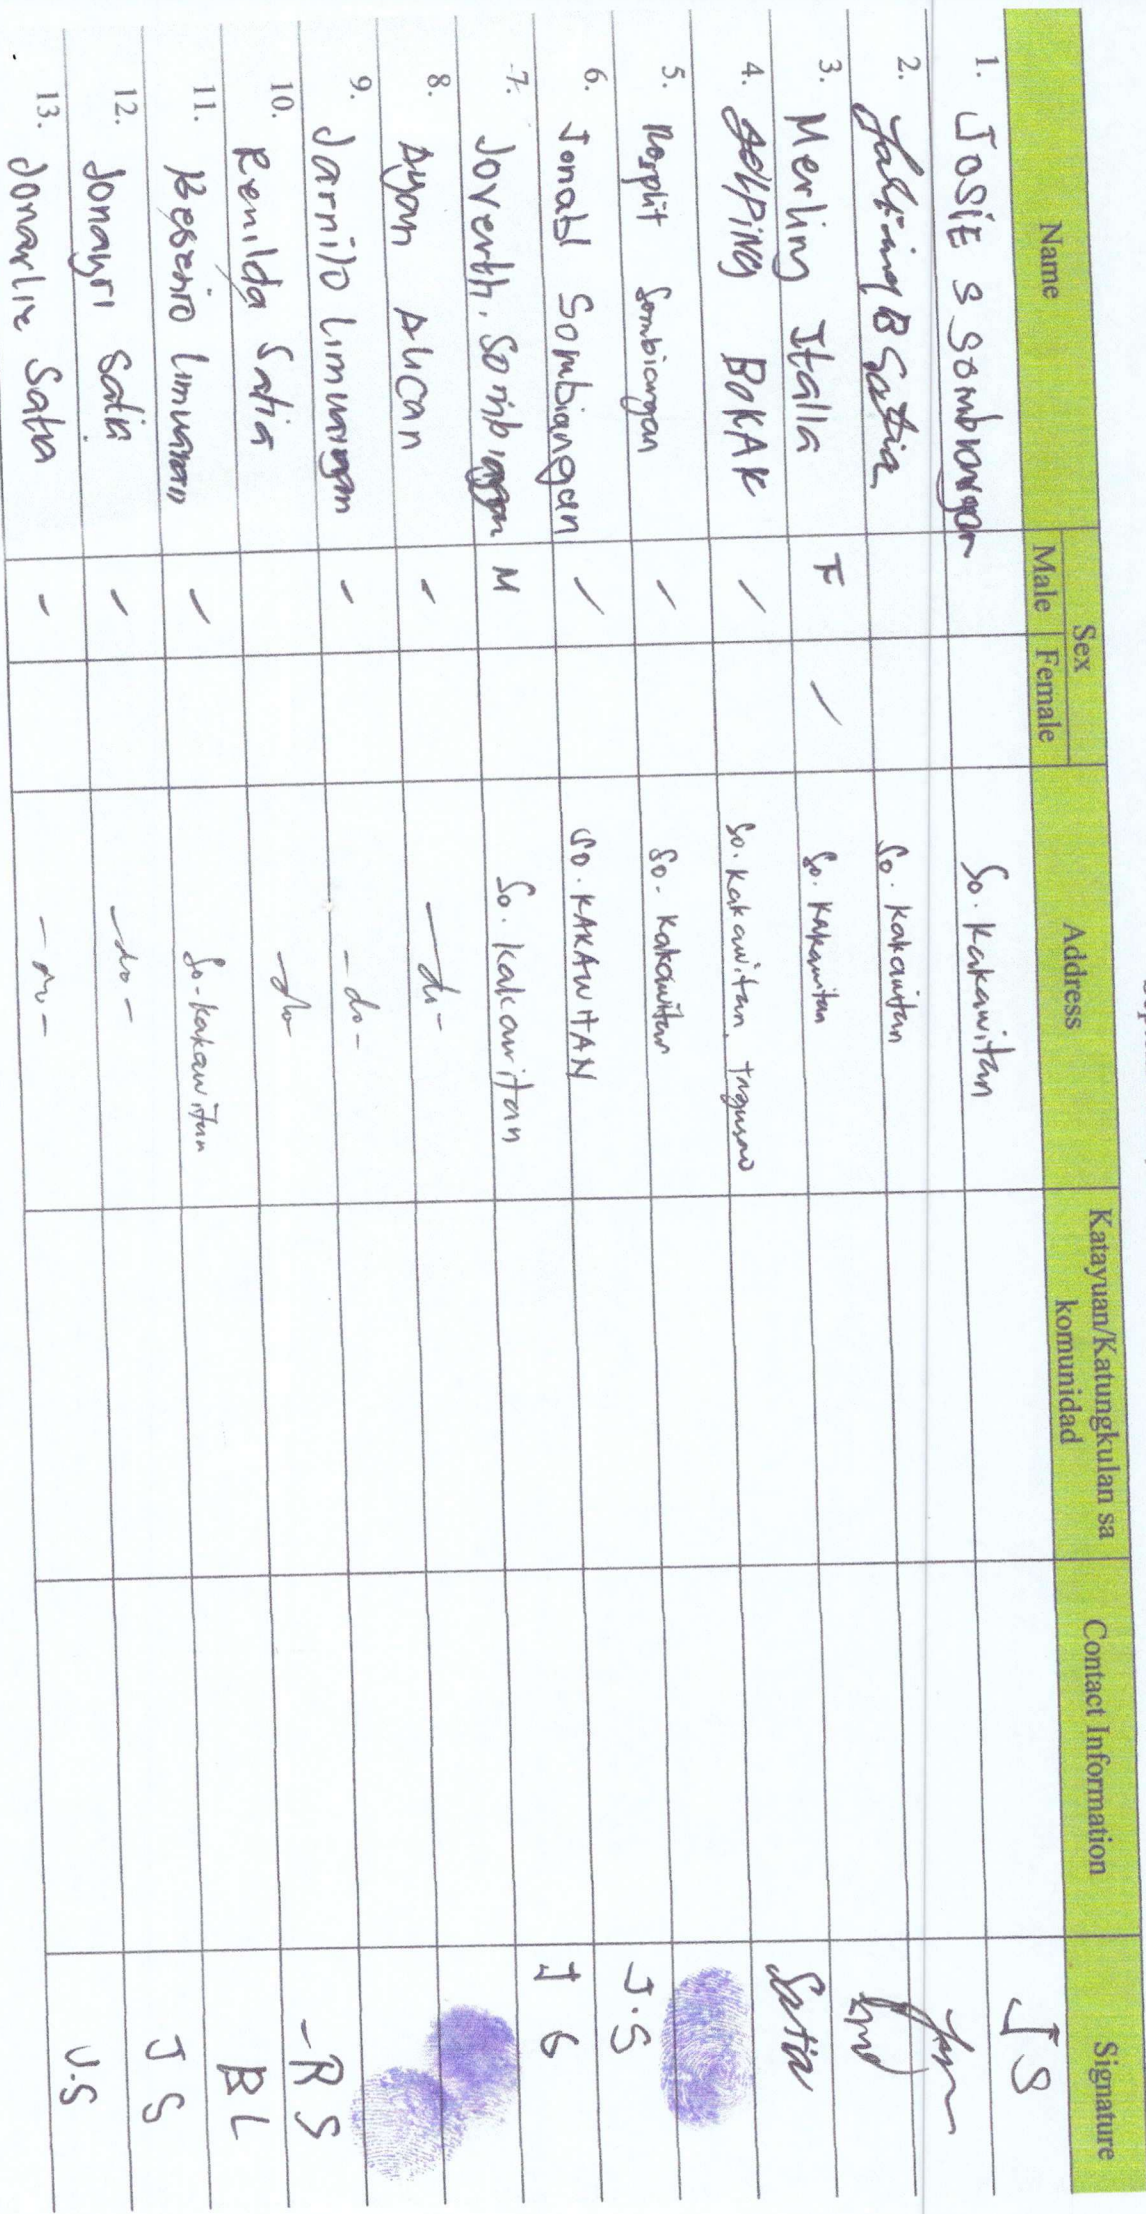 Name Sex Address Katayuan/Katungkulan sa komunidad Contact Information Signature
Male Female
1. JOSIE S Sombiangan So. Kakawitan JS
2. B Satia So. Kakawitan
3. Merling Italla F / So. Kakawitan Satia
4. BOKAK / So. Kakawitan, Tagusao
5. Rosplit Sombiangan / So. Kakawitan J.S
6. Jonabl Sombiangan / SO. KAKAWITAN J G
7. Joverth. Sombiangan M So. Kakawitan
8. Ayan Alican / -do-
9. Jarnilo Limuangan / -do-
10. Renilda Satia -do- -RS
11. Besenro Limuanan / So. Kakawitan BL
12. Jonayri Satia / -do- JS
13. Jonarlie Satia / -do- J.S